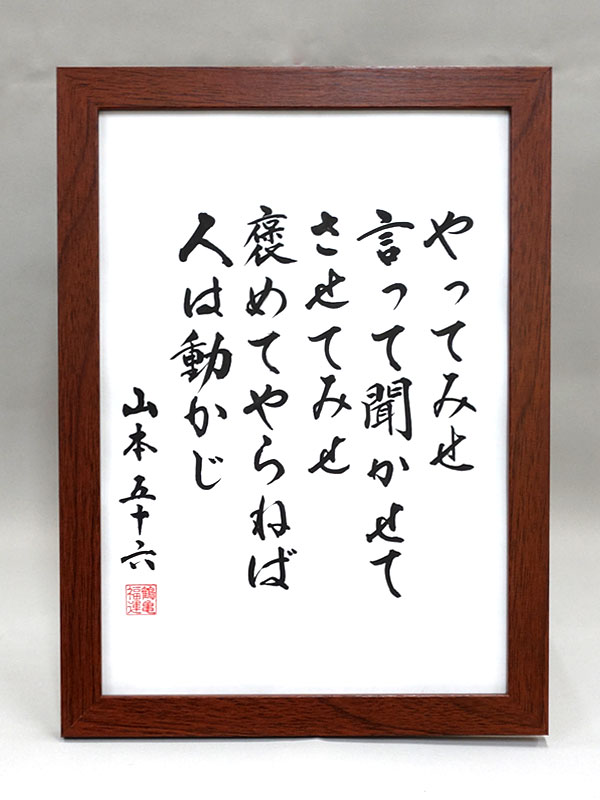 やってみせ
言って聞かせて
させてみせ
褒めてやらねば
人は動かじ
山本五十六
鶴亀
福運